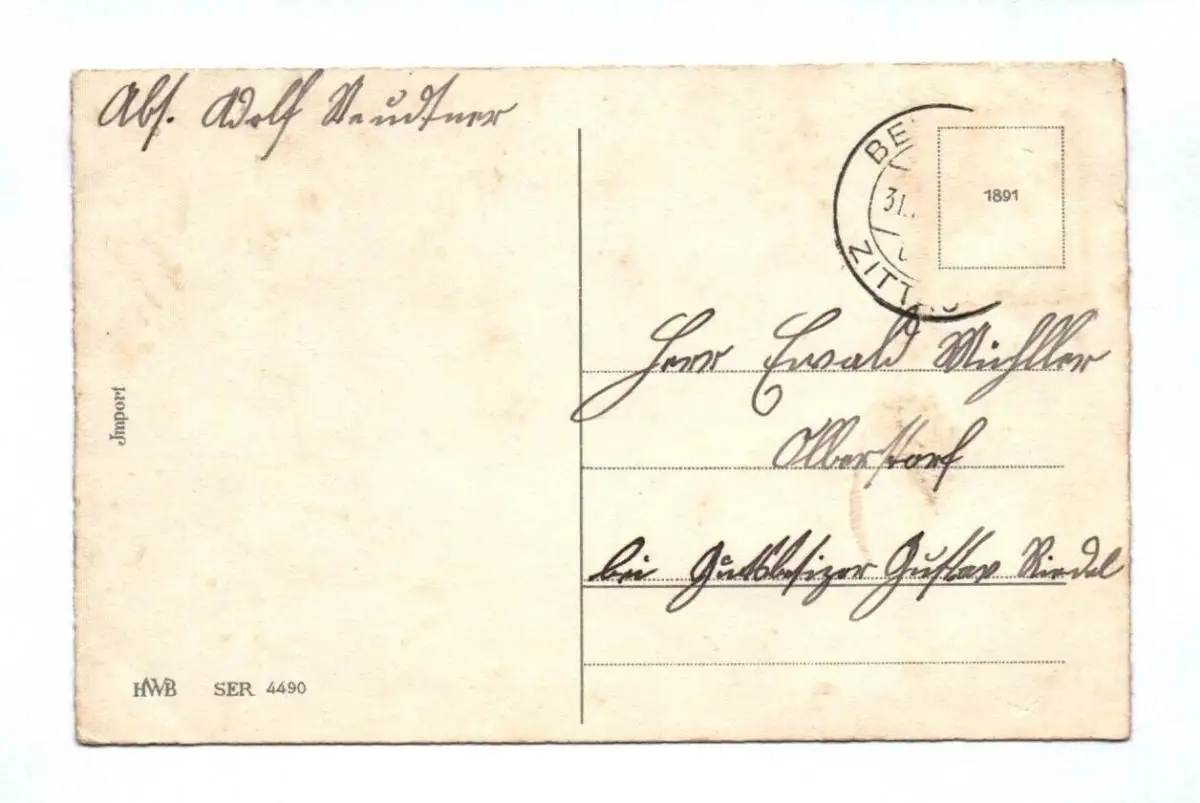 Abs. Adolf Neudtner
BE
31.
ZITTAU
1891
Herr Ewald
Olberstorf
bei Gutsbesizer Gustav Riedel
Import
HWB SER 4490